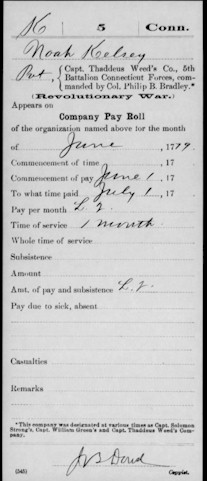 K 5 Conn.
Noah Kelsey
Pvt, { Capt. Thaddeus Weed's Co., 5th
Battalion Connecticut Forces, com-
manded by Col. Philip B. Bradley.*
(Revolutionary War.)
Appears on
Company Pay Roll
of the organization named above for the month
of June, 1779
Commencement of time , 17
Commencement of pay June 1, 17
To what time paid July 1, 17
Pay per month
Time of service 1 month
Whole time of service
Subsistence
Amount
Amt. of pay and subsistence
Pay due to sick, absent
Casualties
Remarks
*This company was designated at various times as Capt. Solomon
Strong's, Capt. William Green's and Capt. Thaddeus Weed's Com-
pany.
(545) Copyist.